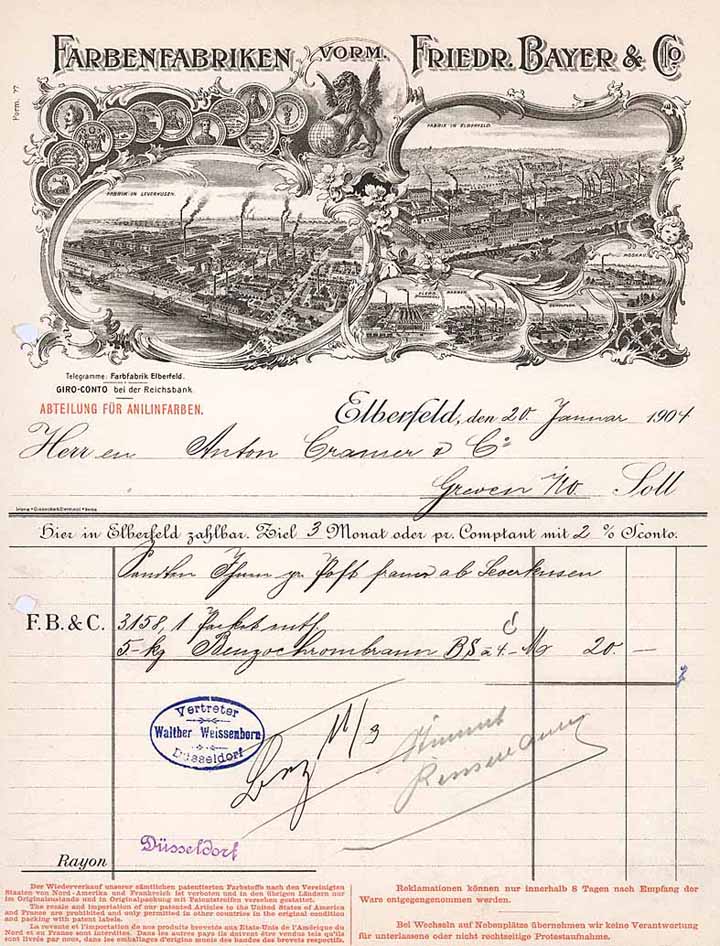 FARBENFABRIKEN VORM. FRIEDR. BAYER & Co.
Form. 77
FABRIK IN LEVERKUSEN.
FABRIK IN ELBERFELD.
MOSKAU.
BARMEN.
Telegramme: Farbfabrik Elberfeld.
GIRO-CONTO bei der Reichsbank
ABTEILUNG FÜR ANILINFARBEN.
Elberfeld, den 20. Januar 1904
Herren Anton Cramer & Co
Greven Soll
Hier in Elberfeld zahlbar. Ziel 3 Monat oder pr. Comptant mit 2 % Sconto.
Sandten Ihnen pr Post franco ab Leverkusen
F. B. & C. 3158, 1 Packet enth
5 - kg Benzochrombraun BS a 4.- M 20. —
Vertreter
Walther Weissenborn
Düsseldorf
11/3
Düsseldorf
Rayon
Der Wiederverkauf unserer sämtlichen patentierten Farbstoffe nach den Vereinigten
Staaten von Nord-Amerika und Frankreich ist verboten und in den übrigen Ländern nur
im Originalzustande und in Originalpackung mit Patentstreifen versehen gestattet.
The resale and importation of our patented Articles to the United States of America
and France are prohibited and only permitted in other countries in the original condition
and packing with patent labels.
La revente et l'importation de nos produits brevetés aux Etats-Unis de l'Amérique du
Nord et en France sont interdites. Dans les autres pays ils doivent être vendus tels qu'ils
sont livrés par nous, dans les emballages d'origine munis des bandes des brevets respectifs.
Reklamationen können nur innerhalb 8 Tagen nach Empfang der
Ware entgegengenommen werden.
Bei Wechseln auf Nebenplätze übernehmen wir keine Verantwortung
für unterlassene oder nicht rechtzeitige Protestaufnahme.